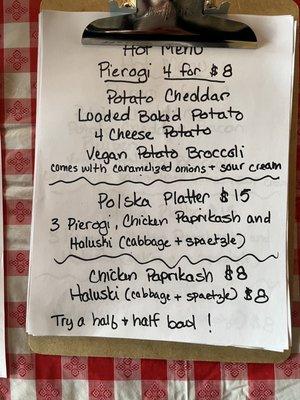 Hot Menu
Pierogi 4 for $8
Potato Cheddar
Loaded Baked Potato
4 Cheese Potato
Vegan Potato Broccoli
comes with caramelized onions + sour cream
Polska Platter $15
3 Pierogi, Chicken Paprikash and
Haluski (cabbage + spaetzle)
Chicken Paprikash $8
Haluski (cabbage + spaetzle) $8
Try a half + half bowl !